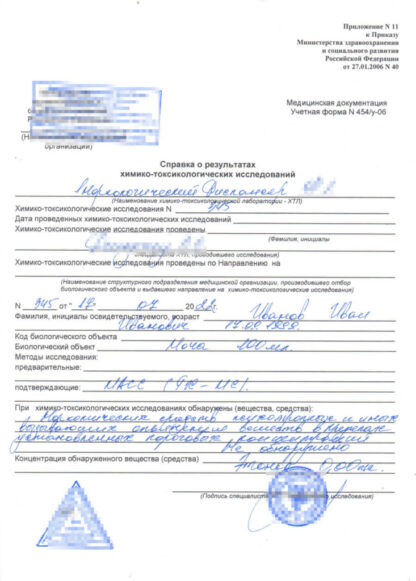 Приложение N 11
к Приказу
Министерства здравоохранения
и социального развития
Российской Федерации
от 27.01.2006 N 40
Медицинская документация
Учетная форма N 454/у-06
организации)
Справка о результатах
химико-токсикологических исследований
Наркологический Диспансер
(Наименование химико-токсикологической лаборатории - ХТЛ)
Химико-токсикологические исследования N 345
Дата проведенных химико-токсикологических исследований
Химико-токсикологические исследования проведены
(Фамилия, инициалы
специалиста ХТЛ, проводившего исследования)
Химико-токсикологические исследования проведены по Направлению на
(Наименование структурного подразделения медицинской организации, производившего отбор
биологического объекта и выдавшего направление на химико-токсикологические исследования)
N 345 от " 17 " 07 2022 г.
Фамилия, инициалы освидетельствуемого, возраст Иванов Иван
Иванович
Код биологического объекта
Биологический объект Моча 100 мл.
Методы исследования:
предварительные:
подтверждающие: МАСС (ГЖ-МС).
При химико-токсикологических исследованиях обнаружены (вещества, средства):
Наркотических средств психотропных и иных
вызывающих опьянение веществ в пределах
установленных пороговых концентраций
Не обнаружено
Концентрация обнаруженного вещества (средства) Этанов 0,00
(Подпись специалиста исследования)